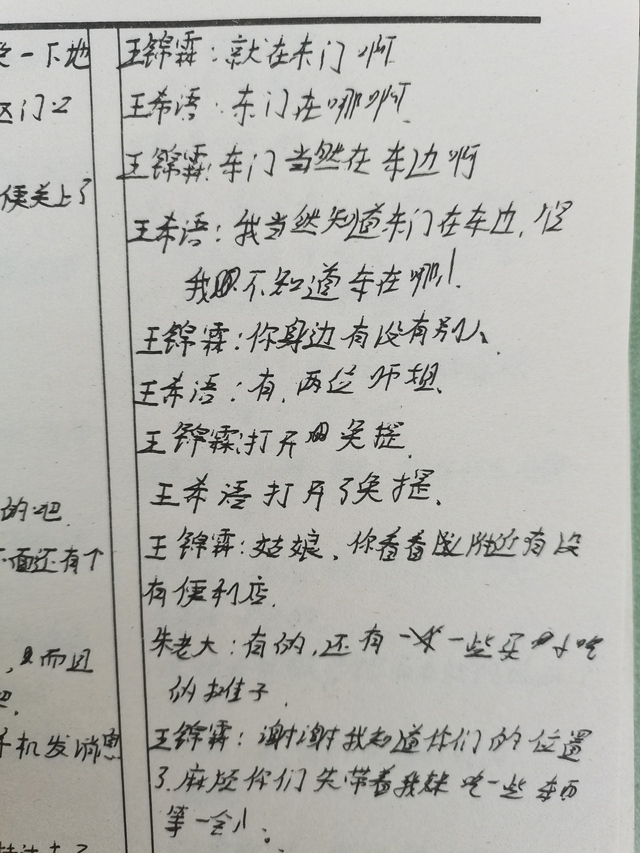 一下地
区门口
便关上了
的吧
面还有个
,而且
吧.
手机发消息
王锦霖:就在东门啊
王希语:东门在哪啊
王锦霖:东门当然在东边啊
王希语:我当然知道东门在东边,但
我不知道东在哪儿.
王锦霖:你身边有没有别人、
王希语:有,两位师姐、
王锦霖:打开免提.
王希语打开了免提、
王锦霖:姑娘、你看看附近有没
有便利店.
朱老大:有的,还有一些买小吃
的摊子.
王锦霖:谢谢我知道你们的位置
了.麻烦你们先带着我妹吃一些东西
等一会儿。